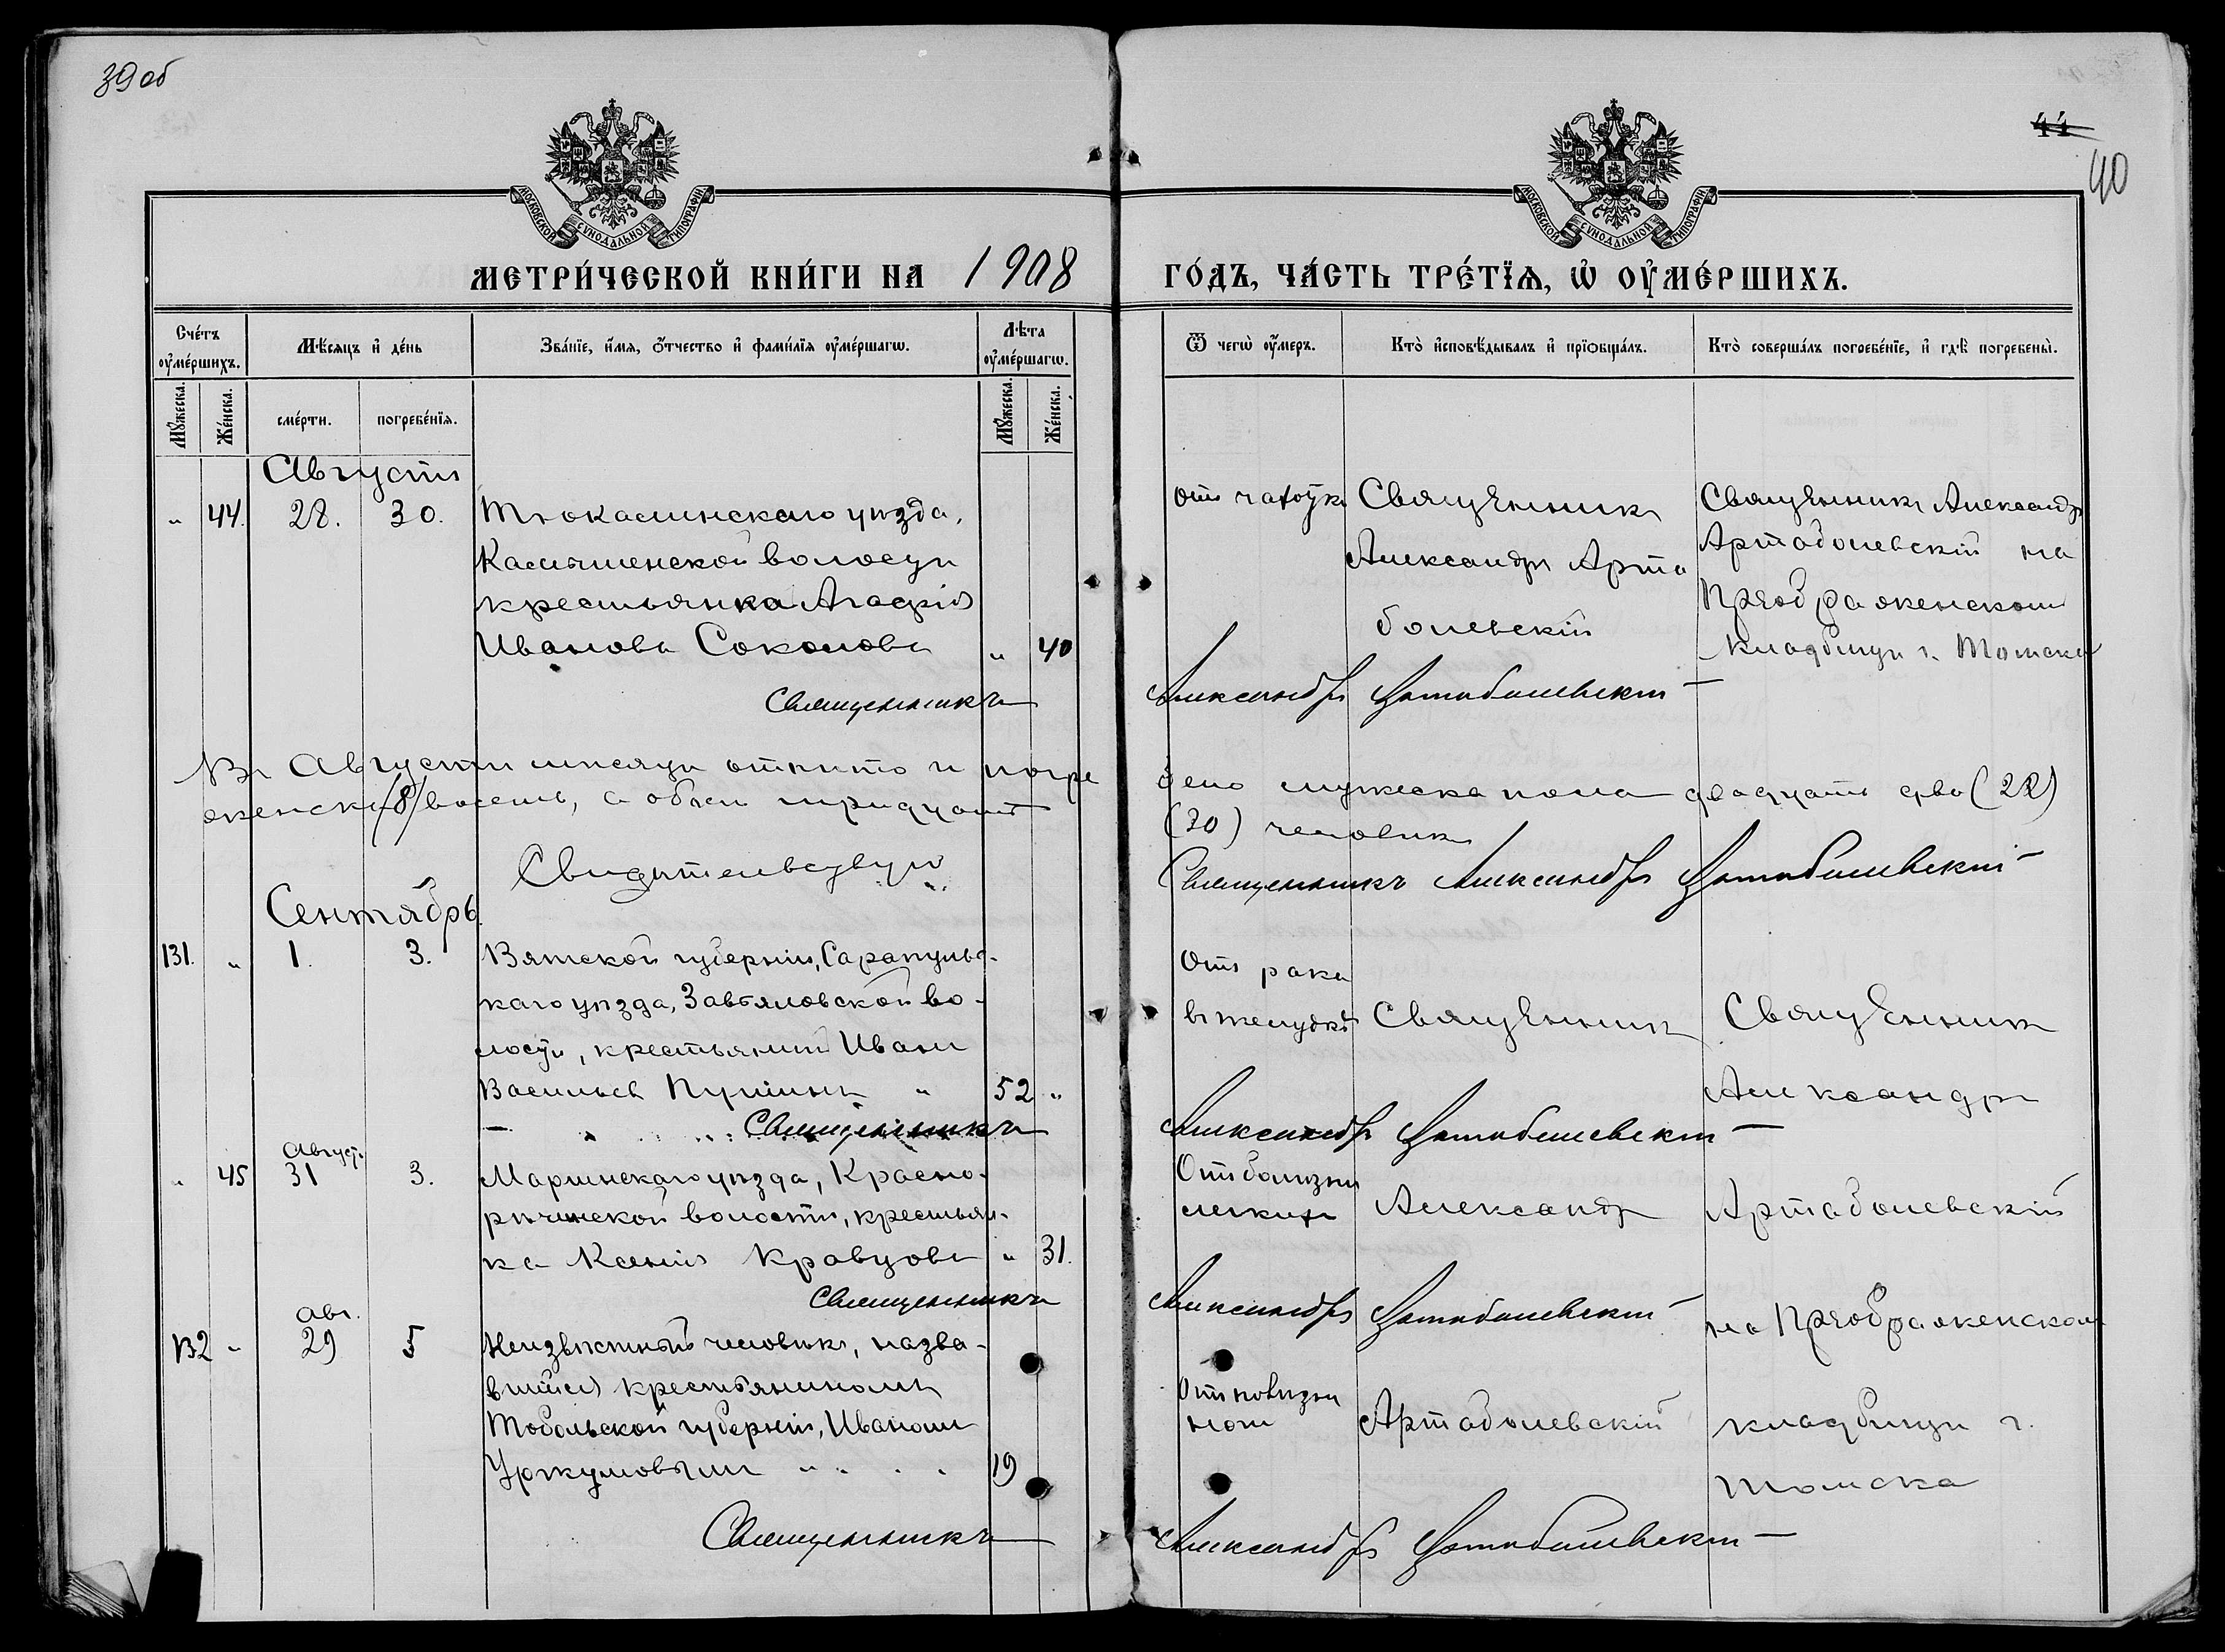 39 об
41
40
МОСКОВСКОЙ СѴНОДАЛЬНОЙ ТИПОГРАФІИ
МОСКОВСКОЙ СѴНОДАЛЬНОЙ ТИПОГРАФІИ
МЕТРИ́ЧЕСКОЙ КНИ́ГИ НА 1908
ГО́ДЪ, ЧА́СТЬ ТРЕ́ТЇѦ, Ѡ҆ ОУ҆МЕ́РШИХЪ.
Сче́тъ оу҆ме́ршихъ.
Мꙋ́жеска.
Же́нска.
Мѣ́сяцъ и҆ де́нь
сме́рти.
погребе́нїѧ.
Зва́нїе, и҆́мѧ, ѻ҆́тчество и҆ фами́лїѧ оу҆ме́ршагѡ.
Лѣ́та оу҆ме́ршагѡ.
Мꙋ́жеска.
Же́нска.
Ѿ чегѡ̀ оу҆́меръ.
Кто̀ и҆сповѣ́дывалъ и҆ прїѻбща́лъ.
Кто̀ соверша́лъ погребе́нїе, и҆ гдѣ̀ погребены̀.
Августъ
" 44. 28. 30. Тюкалинскаго уѣзда,
Камышенской волости
крестьянка Агафія
Иванова Соколова " 40
Отъ чахотки
Священникъ
Александръ Арто
болевскій
Священникъ Александръ
Артоболевскій на
Преображенскомъ
кладбищѣ г. Томска
Священникъ Александръ Артоболевскій
Въ Августѣ мѣсяцѣ отпѣто и погре
бено мужеска пола двадцать два (22)
женска (8) восемь, а обоего тридцать
(30) человѣкъ
Свидѣтельствую
Священникъ Александръ Артоболевскій
Сентябрь.
131. " 1. 3. Вятской губерніи, Сарапульс-
каго уѣзда, Завьяловской во-
лости, крестьянинъ Иванъ
Васильевъ " 52 "
Отъ рака
въ желудкѣ
Священникъ
Священникъ
Александръ
Священникъ Александръ Артоболевскій
Август.
" 45 31 3. Маріинскаго уѣзда, Красно-
рѣчинской волости, крестьян-
ка Ксенія Кравцова " 31.
Отъ болѣзни
легкихъ
Александръ
Артоболевскій
Священникъ Александръ Артоболевскій
Авг.
132 " 29 5 Неизвѣстный человѣкъ, назва-
вшійся крестьяниномъ
Тобольской губерніи, Иваномъ
Уржумовымъ " " . . 19
на Преображенскомъ
Артоболевскій
кладбищѣ г.
Томска
Священникъ Александръ Артоболевскій